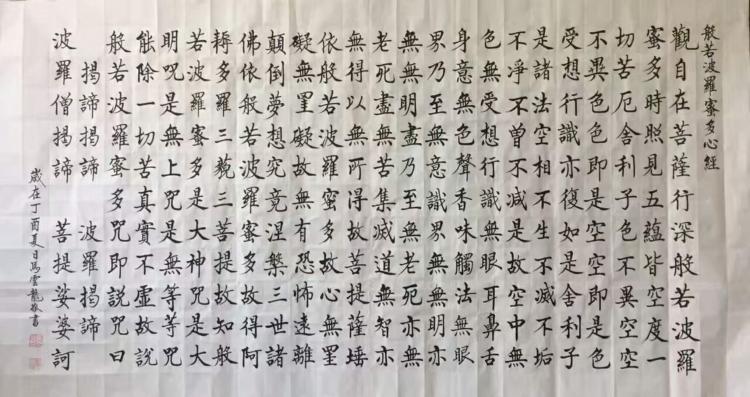 般若波羅蜜多心經
觀自在菩薩行深般若波羅
蜜多時照見五蘊皆空度一
切苦厄舍利子色不異空空
不異色色即是空空即是色
受想行識亦復如是舍利子
是諸法空相不生不滅不垢
不淨不曾不減是故空中無
色無受想行識無眼耳鼻舌
身意無色聲香味觸法無眼
界乃至無意識界無無明亦
無無明盡乃至無老死亦無
老死盡無苦集滅道無智亦
無得以無所得故菩提薩埵
依般若波羅蜜多故心無罣
礙無罣礙故無有恐怖遠離
顛倒夢想究竟涅槃三世諸
佛依般若波羅蜜多故得阿
耨多羅三藐三菩提故知般
若波羅蜜多是大神咒是大
明咒是無上咒是無等等咒
能除一切苦真實不虛故說
般若波羅蜜多咒即說咒曰
揭諦揭諦 波羅揭諦
波羅僧揭諦 菩提娑婆訶
歲在丁酉夏日馬雲龍敬書